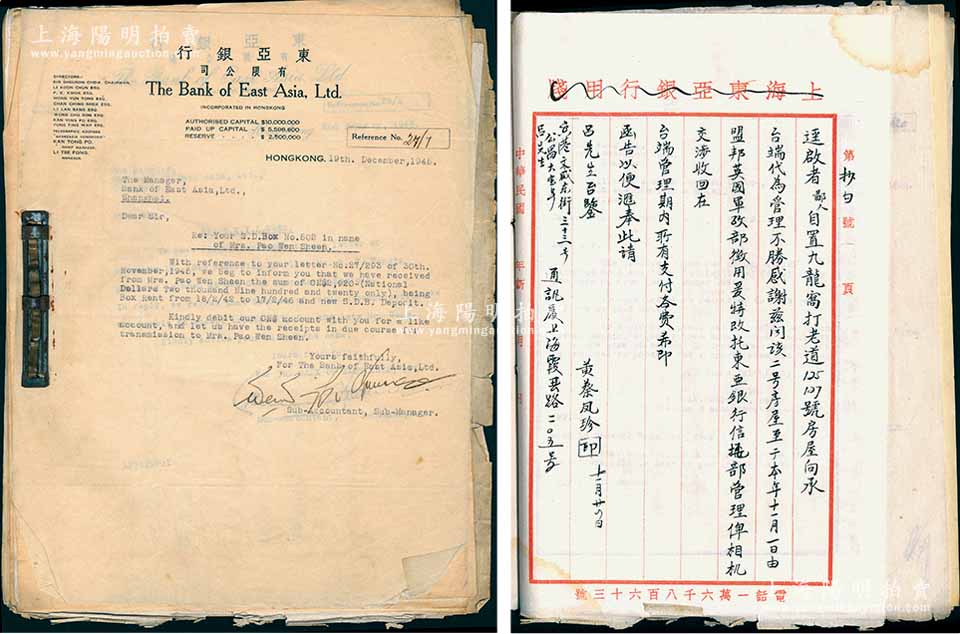 上海陽明拍賣
www.yangmingauction.com
東亞銀行
有限公司
The Bank of East Asia, Ltd.
INCORPORATED IN HONGKONG
AUTHORISED CAPITAL $10,000,000
PAID UP CAPITAL $ 5,598,600
RESERVE $ 2,500,000
DIRECTORS:-
SIR SHOUSON CHOW, CHAIRMAN.
LI KOON CHUN ESQ.
P. K. KWOK ESQ.
WONG YUN TONG ESQ.
CHAN CHING SHEK ESQ.
LI LAN SANG ESQ.
WONG CHU SON ESQ.
KAN YING PO ESQ.
FUNG PING WAH ESQ.
TELEGRAPHIC ADDRESS
KAN TONG PO,
CHIEF MANAGER.
LI TSE FONG,
MANAGER.
Reference No. 27/7
HONGKONG, 19th. December, 1946.
The Manager,
Bank of East Asia, Ltd.,
Shanghai.
Dear Sir,
Re: Your S.D.Box No.502 in name
of Mrs. Pao Wen Sheen.
With reference to your letter No.27/293 of 30th.
November, 1946, we beg to inform you that we have received
from Mrs. Pao Wen Sheen the sum of CN$2,920-(National
Dollars Two thousand Nine hundred and twenty only), being
Box Rent from 18/2/42 to 17/2/46 and new S.D.B. Deposit.
Kindly debit our CN$ account with you for a like
account, and let us have the receipts in due course for
transmission to Mrs. Pao Wen Sheen.
Yours faithfully,
For The Bank of East Asia, Ltd.
Sub-Accountant, Sub-Manager.
上海陽明拍賣
www.yangmingauction.com
上海東亞銀行用箋
第抄白號 頁
逕啟者鄙人自置九龍窩打老道125 127號房屋向承
台端代為管理不勝感謝茲闻該二号房屋至于本年十一月一日由
盟邦英國軍政部徵用爰特改托東亞銀行信托部管理俾相机
交涉收回在
台端管理期内所有支付各费希即
函告以便滙奉此請
呂先生台鑒
黄蔡凤珍 印 十一月廿六日
香港文咸东街三十三号
公昌大宝号
呂先生
通訊處上海霞飛路一二〇五号
中華民國 年 月
電話一萬六千八百六十三號
上海陽明拍賣
www.yangmingauction.com